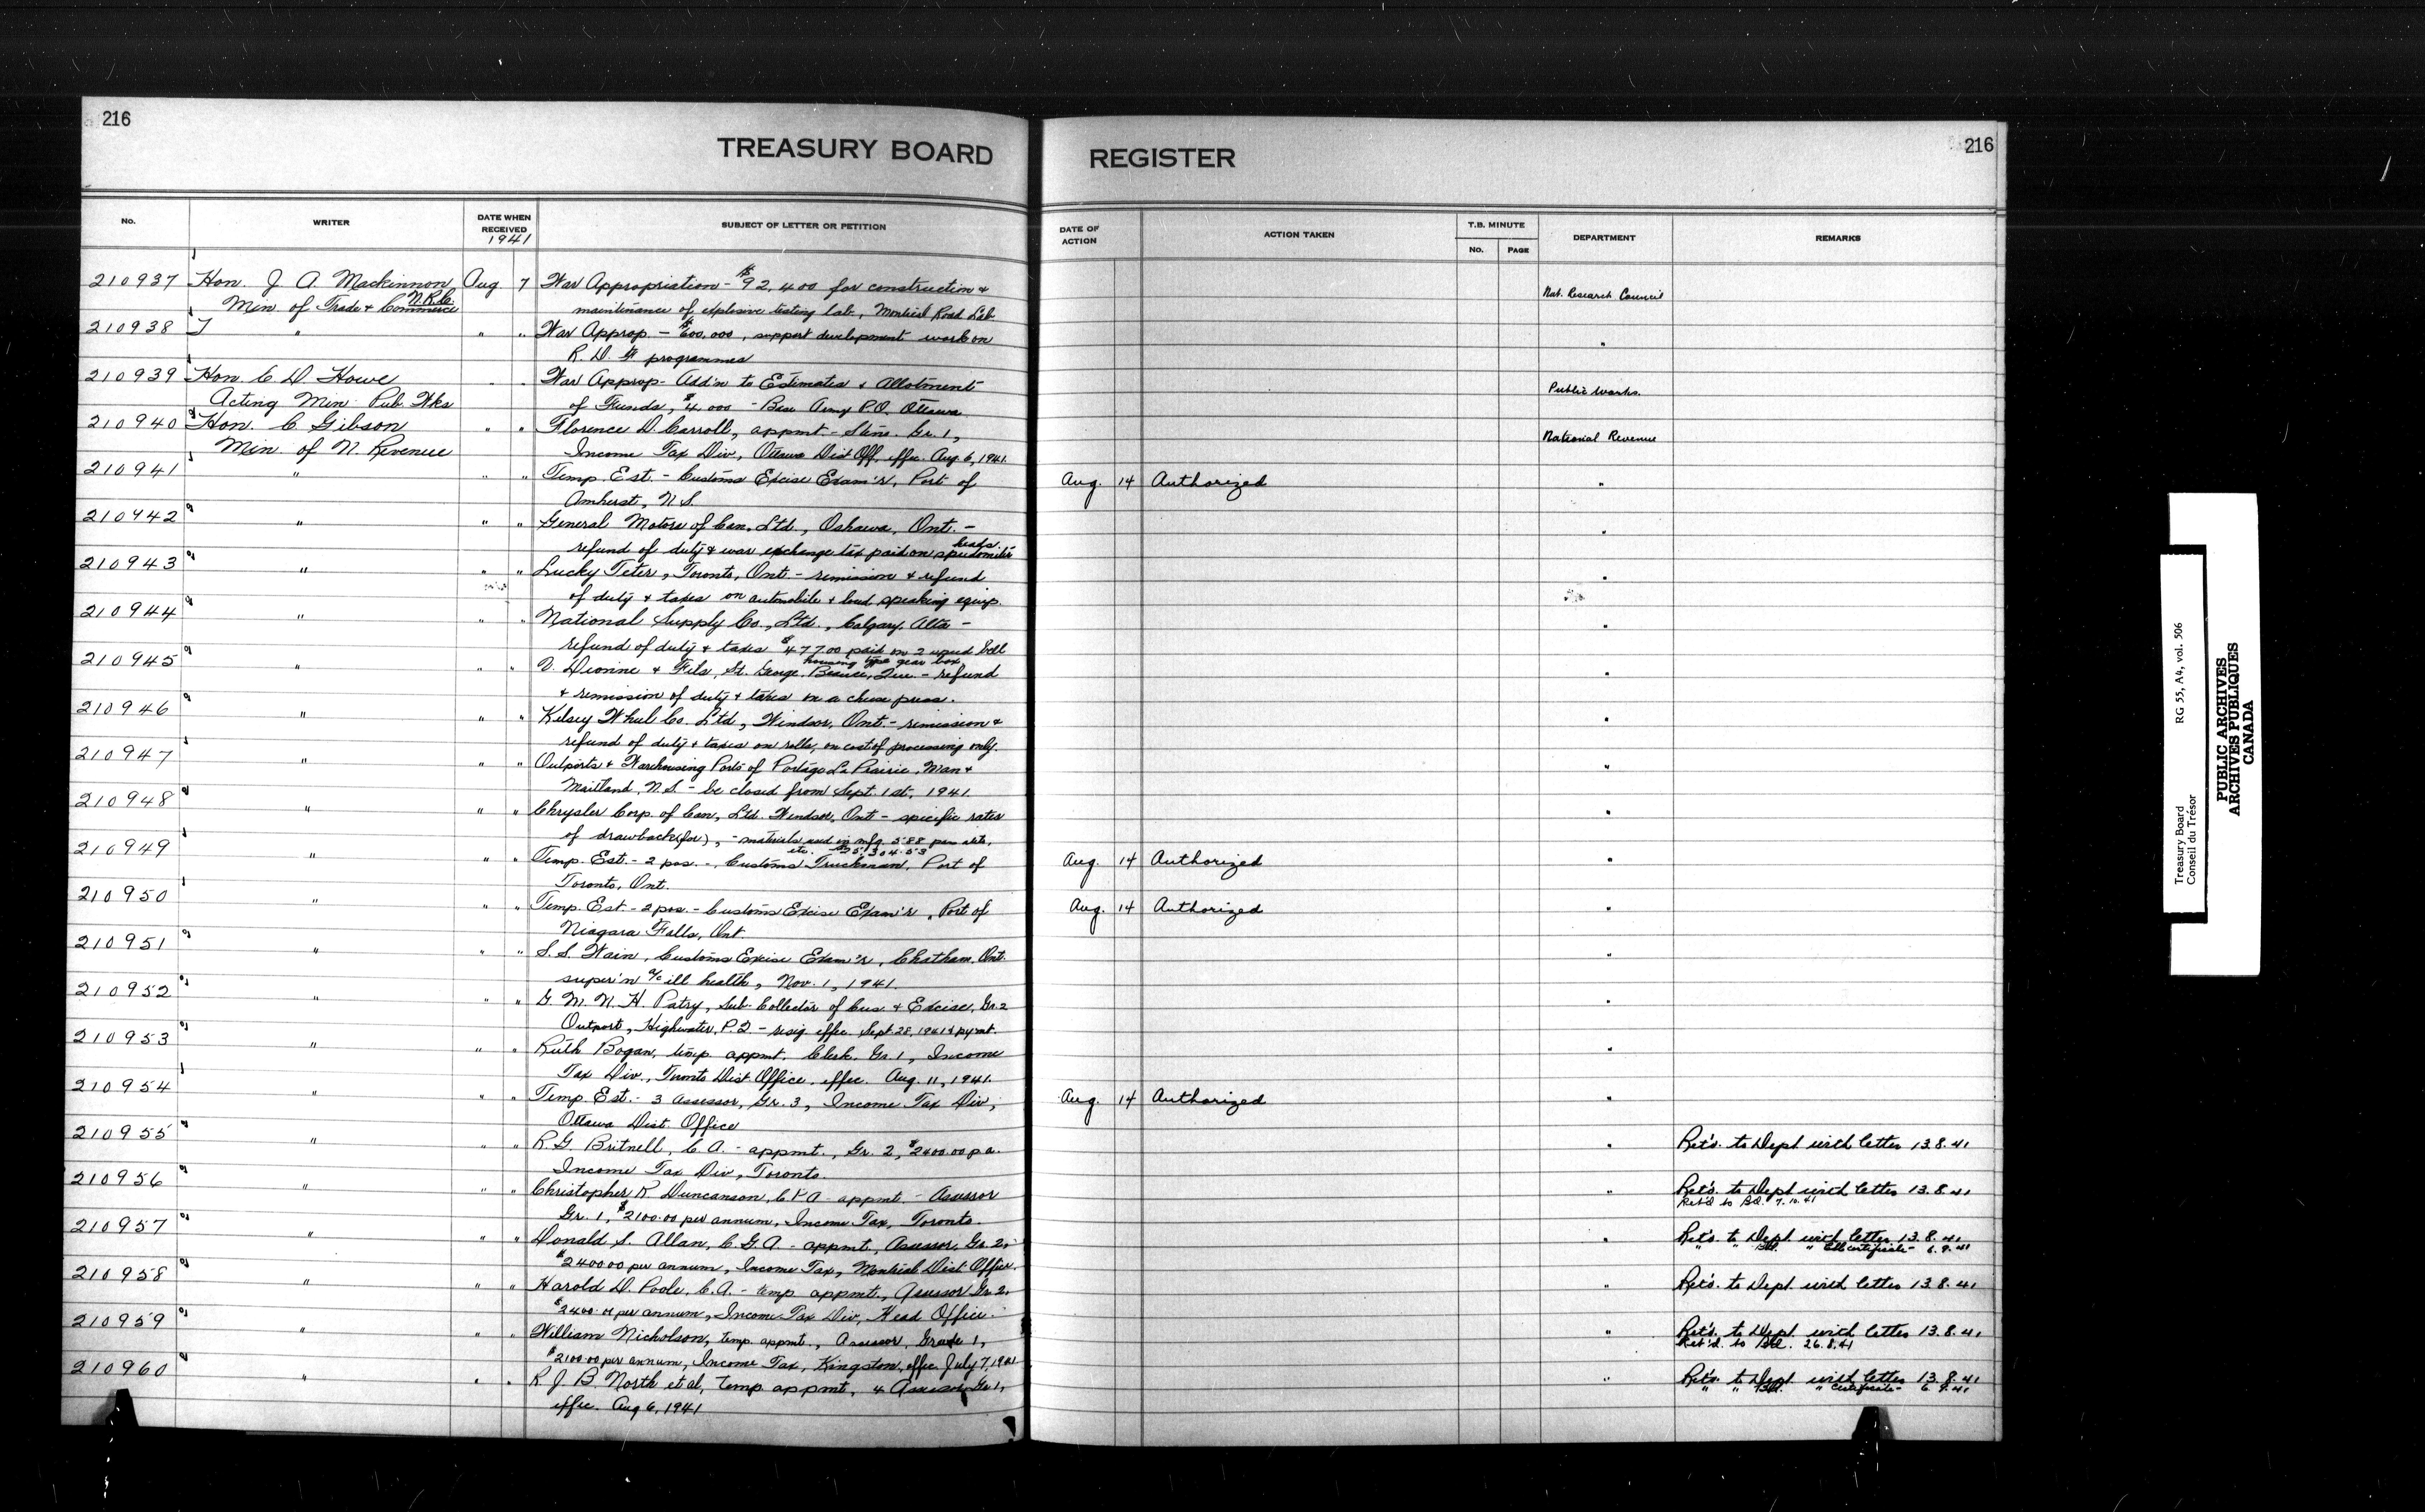 216
TREASURY BOARD
REGISTER
216
No.
WRITER
DATE WHEN RECEIVED
1941
SUBJECT OF LETTER OR PETITION
DATE OF ACTION
ACTION TAKEN
T.B. MINUTE
No.
PAGE
DEPARTMENT
REMARKS
210937 Hon. J. A. Mackinnon Aug 7 War Appropriation - $92,400 for construction + Nat. Research Council
Min of Trade + Commerce N.R.C. maintenance of explosive testing lab, Montreal Road Lab.
210938 " " " War Approp - $600,000, support development work on "
R. D. F. programmes
210939 Hon. C. D. Howe " " War Approp - Add'n to Estimates + Allotment Public Works.
Acting Min. Pub. Wks of Funds, $4,000 - Base Army P.O. Ottawa
210940 Hon. C. Gibson " " Florence D. Carroll, appmt - Steno. Gr. 1, National Revenue
Min. of N. Revenue Income Tax Div, Ottawa Dist Off. effec. Aug. 6, 1941.
210941 " " " Temp. Est. - Customs Excise Exam'r, Port of Aug. 14 Authorized "
Amherst, N.S.
210942 " " " General Motors of Can. Ltd., Oshawa, Ont. - "
refund of duty + war exchange tax paid on speedometer heads
210943 " " " Lucky Teter, Toronto, Ont - remission + refund "
of duty + taxes on automobile + loud speaking equip.
210944 " " " National Supply Co., Ltd., Calgary, Alta - "
refund of duty + taxes $477.00 paid on 2 used bell
housing type gear box
210945 " " " V. Dionne + Fils, St. George, Beauce, Que. - refund "
+ remission of duty + taxes on a cheese press.
210946 " " " Kelsey Wheel Co. Ltd, Windsor, Ont. - remission + "
refund of duty + taxes on rolls, on cost of processing only.
210947 " " " Outports + Warehousing Ports of Portage La Prairie, Man + "
Maitland, N.S. - be closed from Sept. 1st, 1941.
210948 " " " Chrysler Corp. of Can, Ltd. Windsor, Ont - specific rates "
of drawback (for), - materials used in mfg. 588 pass. auto,
etc. $25,304.53
210949 " " " Temp. Est. - 2 pos. - Customs Truckman, Port of Aug. 14 Authorized "
Toronto, Ont.
210950 " " " Temp. Est. - 2 pos. - Customs Excise Exam'r, Port of Aug. 14 Authorized "
Niagara Falls, Ont.
210951 " " " S. S. Wain, Customs Excise Exam'r, Chatham, Ont. "
super'n a/c ill health, Nov. 1, 1941.
210952 " " " G. M. N. H. Patry, Sub. Collector of Cus. + Excise, Gr. 2 "
Outport, Highwater, P.Q - resig. effec. Sept. 28, 1941 + pymt.
210953 " " " Ruth Bogan, temp. appmt. Clerk, Gr. 1, Income "
Tax Div., Toronto Dist Office, effec. Aug. 11, 1941.
210954 " " " Temp. Est. - 3 Assessor, Gr. 3, Income Tax Div, Aug. 14 Authorized "
Ottawa Dist. Office
210955 " " " R. G. Britnell, C. A. - appmt., Gr. 2, $2400.00 p.a. " Ret'd. to Dept with letter 13.8.41
Income Tax Div, Toronto.
210956 " " " Christopher R. Duncanson, C.P.A - appmt. - Assessor " Ret'd. to Dept with letter 13.8.41
Ret'd to Bd. 7.10.41
Gr. 1, $2100.00 per annum, Income Tax, Toronto.
210957 " " " Donald S. Allan, C. G. A - appmt., Assessor, Gr. 2, " Ret'd. to Dept with letter 13.8.41
" " " certificate 6.9.41
$2400.00 per annum, Income Tax, Montreal Dist Office.
210958 " " " Harold D. Poole, C.A. - temp appmt., Assessor Gr. 2, " Ret'd. to Dept. with letter 13.8.41
$2400.00 per annum, Income Tax Div, Head Office.
210959 " " " William Nicholson, temp. appmt., Assessor, Grade 1, " Ret'd. to Dept. with letter 13.8.41
Ret'd. to Bd. 26.8.41
$2100.00 per annum, Income Tax, Kingston, effec July 7, 1941
210960 " " " R. J. B. North et al, temp. appmt, 4 Assessor Gr. 1, " Ret'd. to Dept with letter 13.8.41
" " " certificate 6.9.41
effec. Aug 6, 1941
Treasury Board RG 55, A4, vol. 506
Conseil du Trésor
PUBLIC ARCHIVES
ARCHIVES PUBLIQUES
CANADA